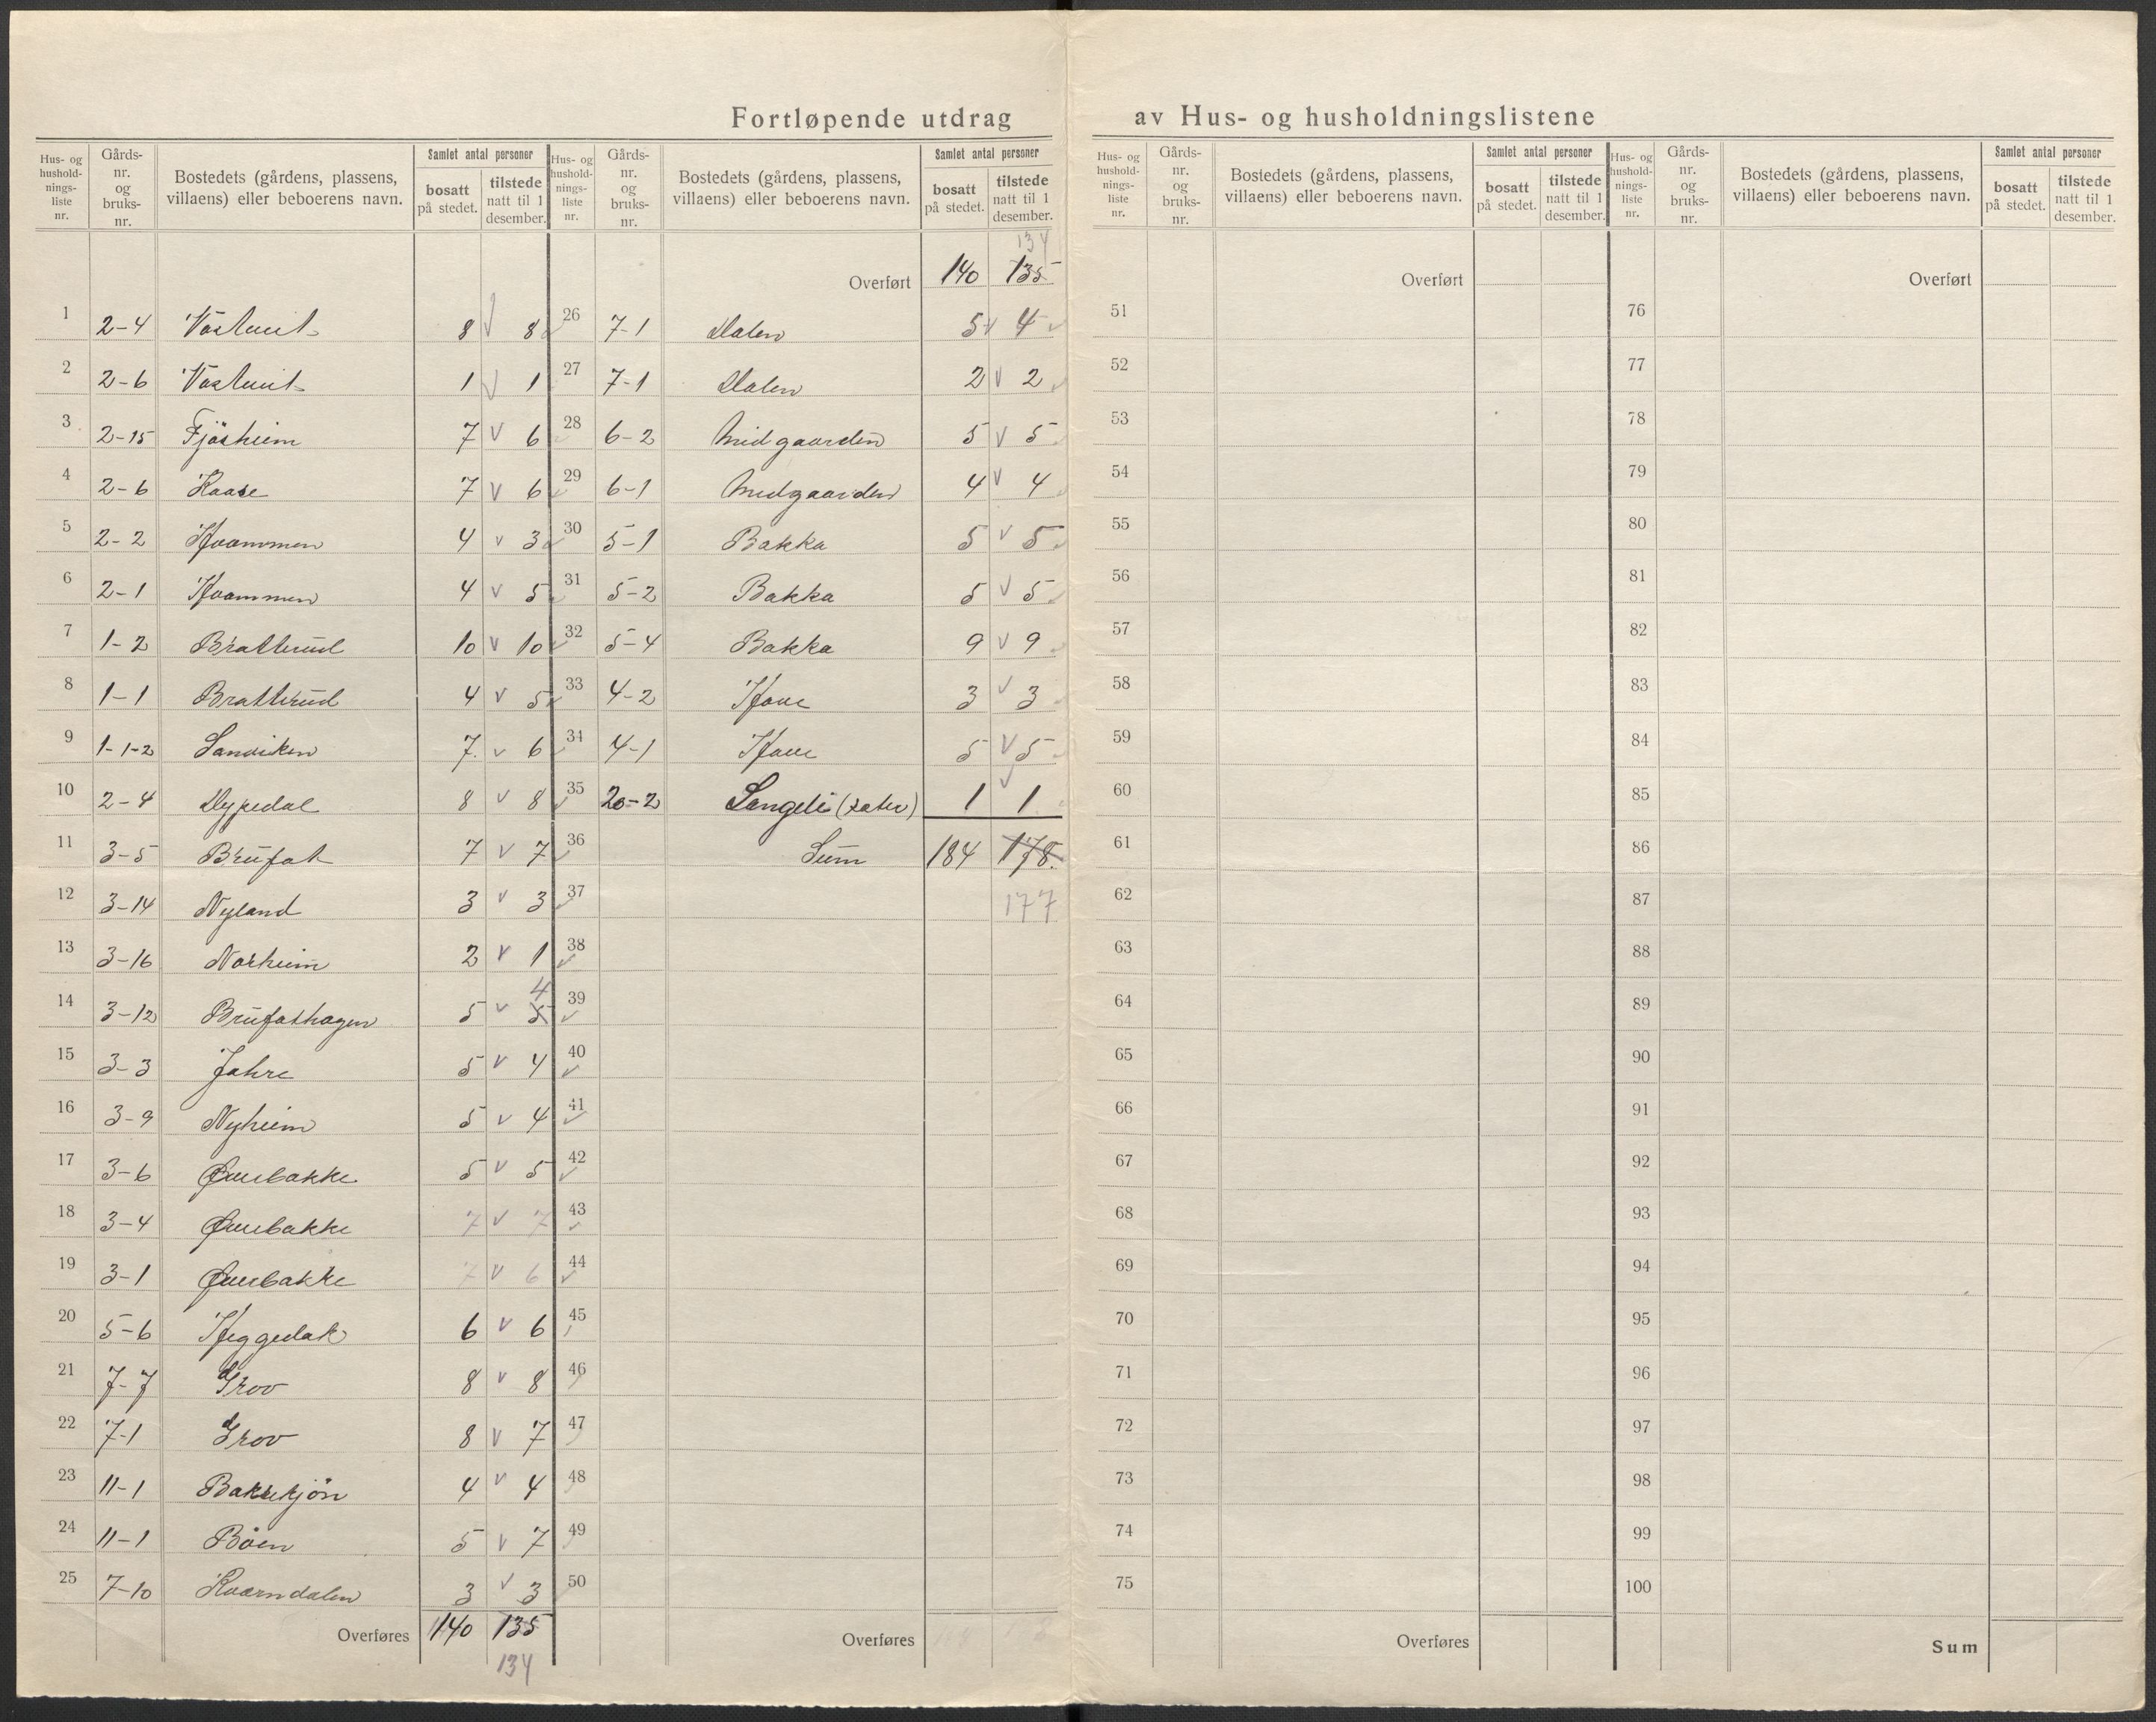 Fortløpende utdrag av Hus- og husholdningslistene
Hus- og husholdningsliste nr. | Gårds- nr. og bruks- nr. | Bostedets (gårdens, plassens, villaens) eller beboerens navn. | Samlet antal personer | bosatt på stedet. | tilstede natt til 1 desember.
1 2-4 8 v 8
2 2-6 1 v 1
3 2-15 Fjösheim 7 v 6
4 2-6 Kaase 7 v 6
5 2-2 Hvammen 4 v 3
6 2-1 Hvammen 4 v 5
7 1-2 Bratterud 10 v 10
8 1-1 Bratterud 4 v 5
9 1-1-2 Sanviken 7 v 6
10 2-4 Dypedal 8 v 8
11 3-5 Brufat 7 v 7
12 3-14 Nyland 3 v 3
13 3-16 Norheim 2 v 1
14 3-12 Brufathagen 5 v 5 4
15 3-3 Jahre 5 v 4
16 3-9 Nyheim 5 v 4
17 3-6 5 v 5
18 3-4 7 v 7
19 3-1 7 v 6
20 5-6 Heggedak 6 v 6
21 7-7 Grov 8 v 8
22 7-1 Grov 8 v 7
23 11-1 Bakkekjön 4 v 4
24 11-1 Böen 5 v 7
25 7-10 Kværndalen 3 v 3
Overføres 140 135
134
Hus- og husholdningsliste nr. | Gårds- nr. og bruks- nr. | Bostedets (gårdens, plassens, villaens) eller beboerens navn. | Samlet antal personer | bosatt på stedet. | tilstede natt til 1 desember.
134
Overført 140 135
26 7-1 Dalen 5 v 4
27 7-1 Dalen 2 v 2
28 6-2 Midgaarden 5 v 5
29 6-1 Midgaarden 4 v 4
30 5-1 Bakka 5 v 5
31 5-2 Bakka 5 v 5
32 5-4 Bakka 9 v 9
33 4-2 Hove 3 v 3
34 4-1 Hove 5 v 5
35 20-2 Langeli (sæter) 1 v 1
36 Sum 184 178
37 177
38
39
40
41
42
43
44
45
46
47
48
49
50
Overføres
Hus- og husholdningsliste nr. | Gårds- nr. og bruks- nr. | Bostedets (gårdens, plassens, villaens) eller beboerens navn. | Samlet antal personer | bosatt på stedet. | tilstede natt til 1 desember.
Overført
51
52
53
54
55
56
57
58
59
60
61
62
63
64
65
66
67
68
69
70
71
72
73
74
75
Overføres
Hus- og husholdningsliste nr. | Gårds- nr. og bruks- nr. | Bostedets (gårdens, plassens, villaens) eller beboerens navn. | Samlet antal personer | bosatt på stedet. | tilstede natt til 1 desember.
Overført
76
77
78
79
80
81
82
83
84
85
86
87
88
89
90
91
92
93
94
95
96
97
98
99
100
Sum